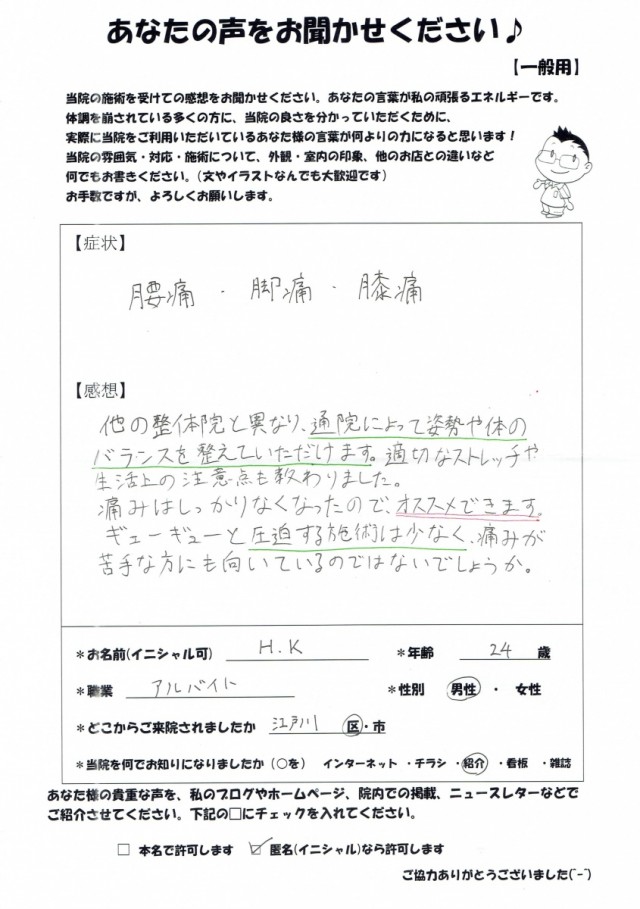 あなたの声をお聞かせください♪
【一般用】
当院の施術を受けての感想をお聞かせください。あなたの言葉が私の頑張るエネルギーです。
体調を崩されている多くの方に、当院の良さを分かっていただくために、
実際に当院をご利用いただいているあなた様の言葉が何よりの力になると思います!
当院の雰囲気・対応・施術について、外観・室内の印象、他のお店との違いなど
何でもお書きください。(文やイラストなんでも大歓迎です)
お手数ですが、よろしくお願いします。
【症状】
腰痛 ・ 脚痛 ・ 膝痛
【感想】
他の整体院と異なり、通院によって姿勢や体の
バランスを整えていただけます。適切なストレッチや
生活上の注意点も教わりました。
痛みはしっかりなくなったので、オススメできます。
ギューギューと圧迫する施術は少なく、痛みが
苦手な方にも向いているのではないでしょうか。
*お名前(イニシャル可) H.K *年齢 24 歳
*職業 アルバイト *性別 男性 ・ 女性
*どこからご来院されましたか 江戸川 区・市
*当院を何でお知りになりましたか(○を) インターネット ・チラシ ・紹介 ・看板 ・雑誌
あなた様の貴重な声を、私のブログやホームページ、院内での掲載、ニュースレターなどで
ご紹介させてください。下記の□にチェックを入れてください。
□ 本名で許可します ☑ 匿名(イニシャル)なら許可します
ご協力ありがとうございました(^-^)